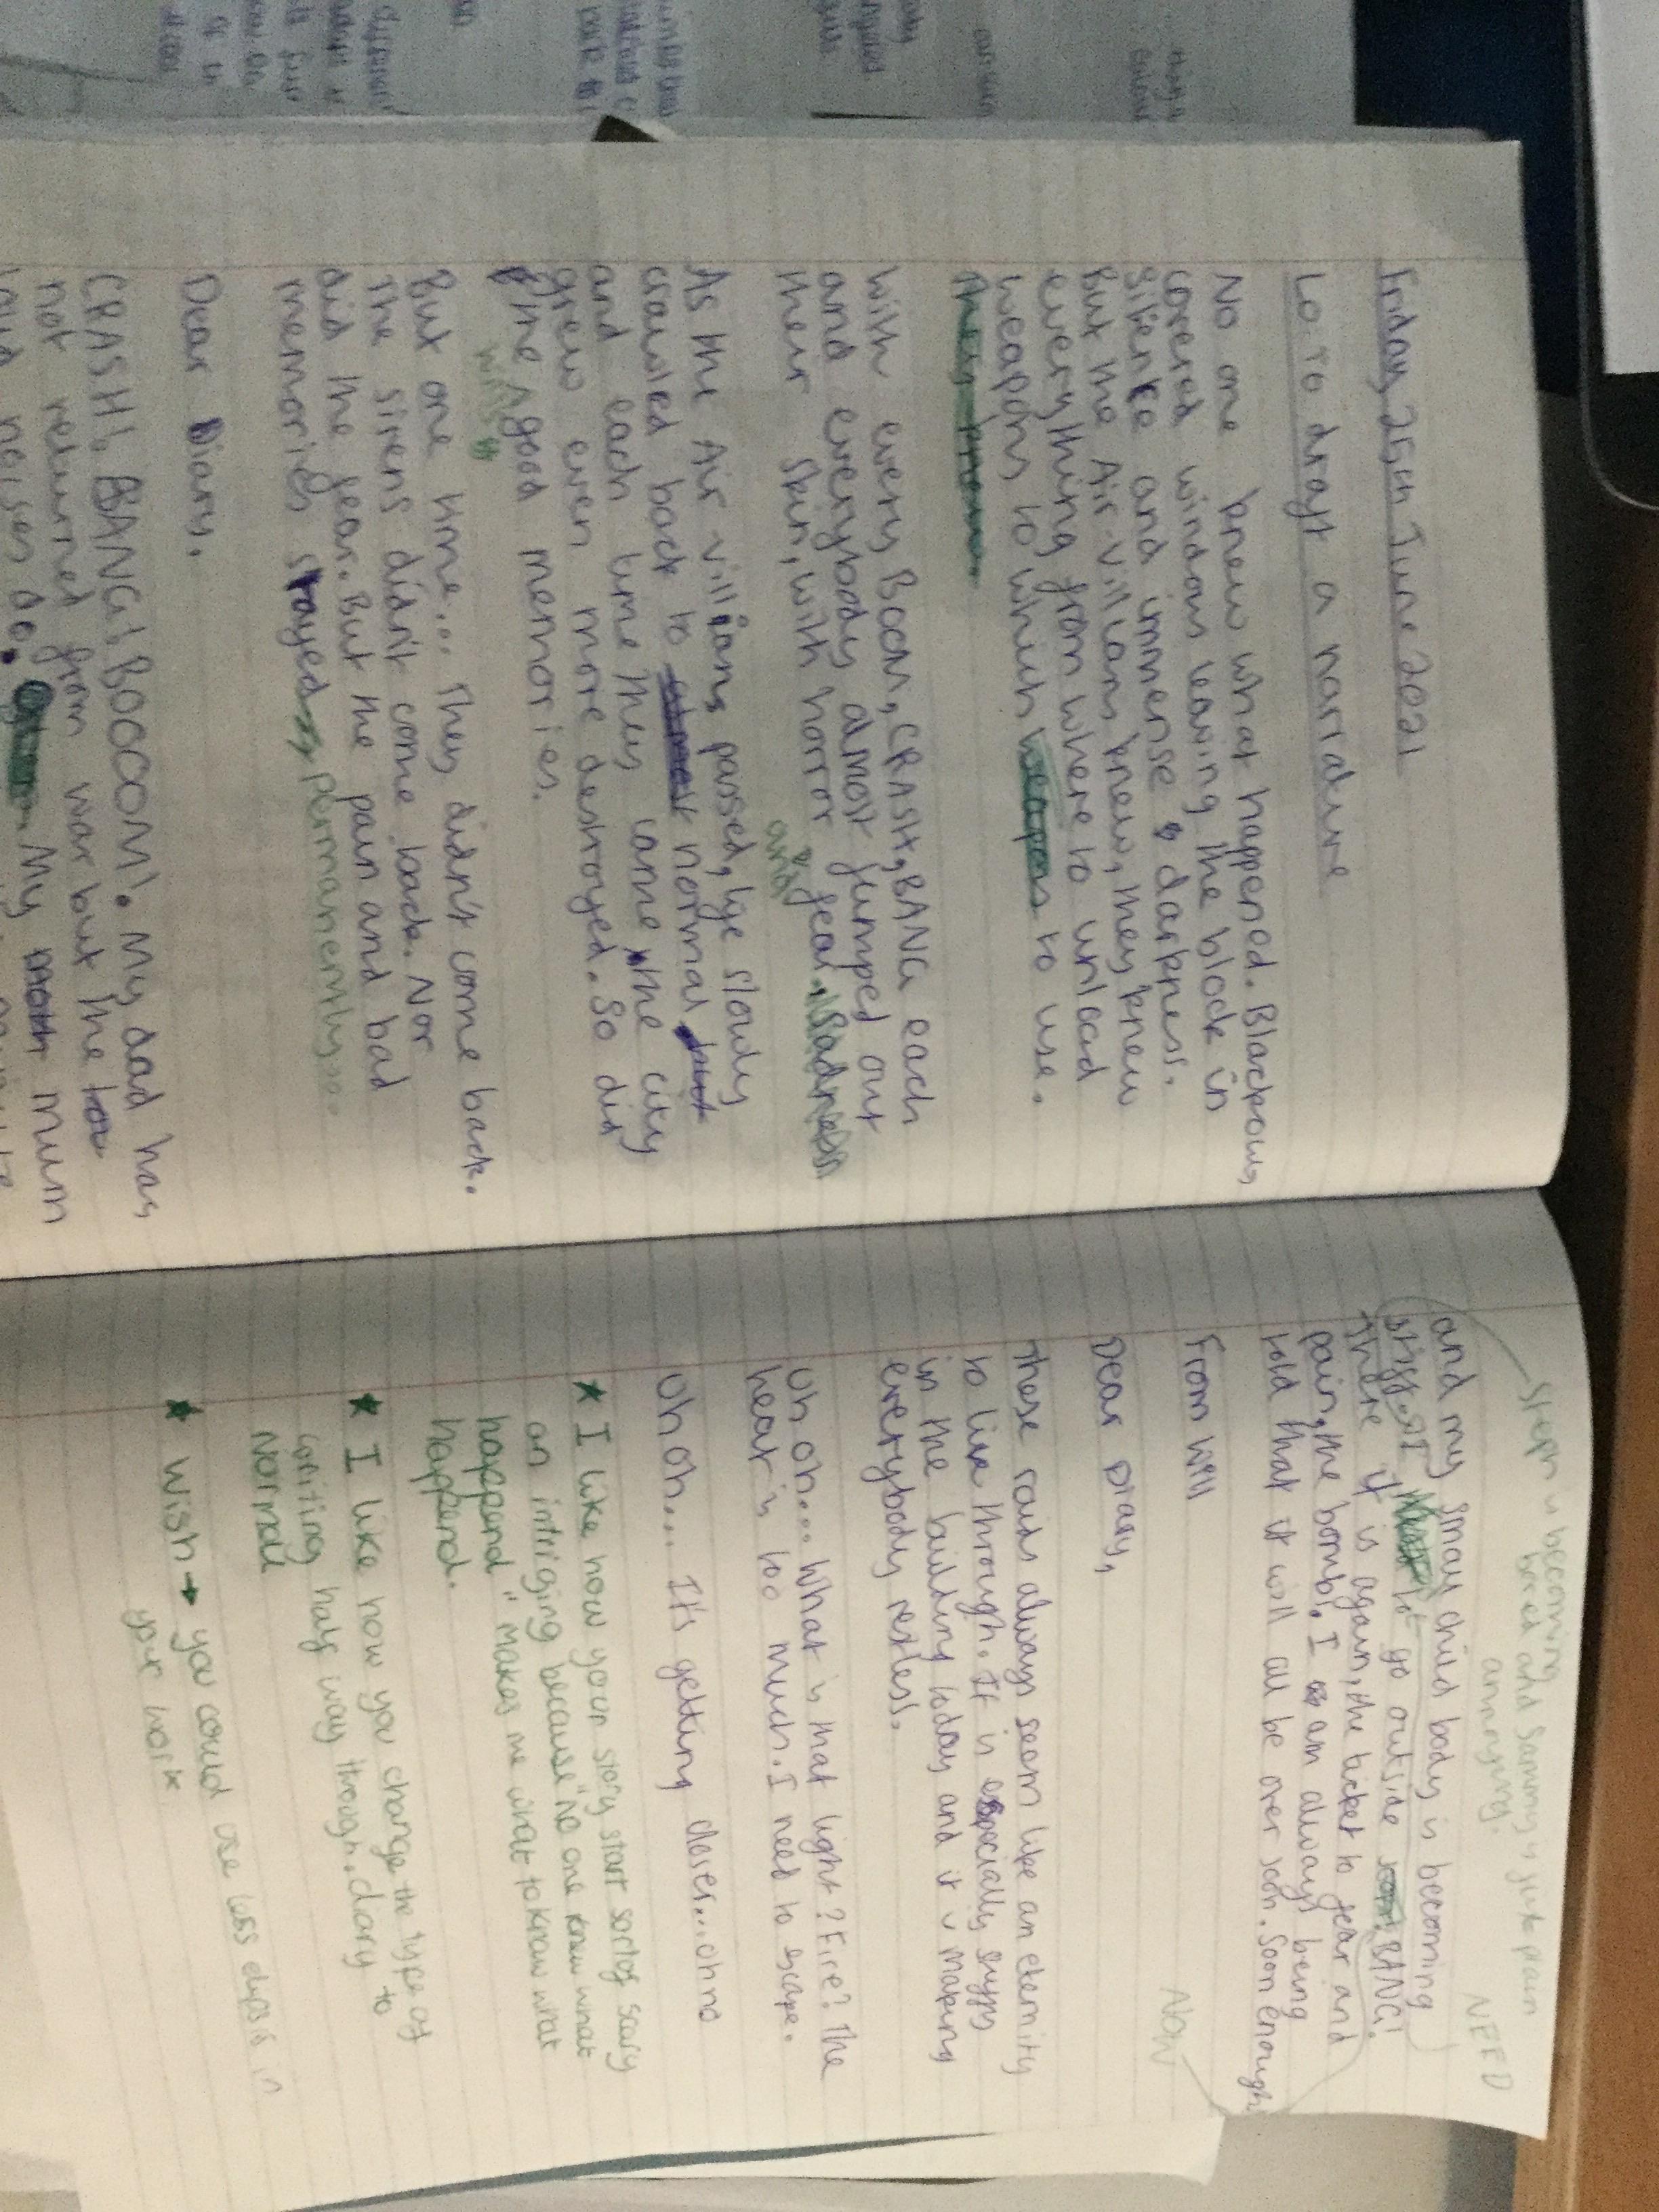 Friday 25th June 2021
Lo To draft a narrative
No one knew what happened. Blackpowy
covered windows leaving the block in
silence and immense darkness.
But the Air villians knew, they knew
everything from where to unload
weapons to which weapons to use.
They knew
with every BOOM, CRASH, BANG each
and everybody almost jumped out
their skin, with horror and fear, Sadness
As the Air villians passed, lige slowly
crawled back to almost normal but
and each time they came the city
grew even more destroyed. So did
the good memories.
But one time... They didn't come back.
The sirens didn't come back. Nor
did the fear. But the pain and bad
memories stayed permanently...
Dear Diary,
CRASH!, BANG!, BOOOOM!. My dad has
not returned from war but the
loud noises do. My mum
Steph is becoming
bored and Sammy is just plain
annoying.
NEED
and my small child body is becoming
stiff. I to go outside soon, BANG!
There it is again, the ticket to fear and
pain, the bombs!. I am always being
told that it will all be over soon. Soon enough
Now
From Will
Dear Diary,
These raids always seem like an eternity
to live through. It is especially
in the building today and it is making
everybody restless.
Uh oh... What is that light? Fire? The
heat is too much. I need to escape.
Uh oh... It's getting closer...oh no
★ I like how your story start sort of scary
an intriging because "No one knew what
happend" makes me what to know what
happend.
★ I like how you change the type of
writing half way through. diary to
Normal
★ wish → you could use less elipsis in
your work